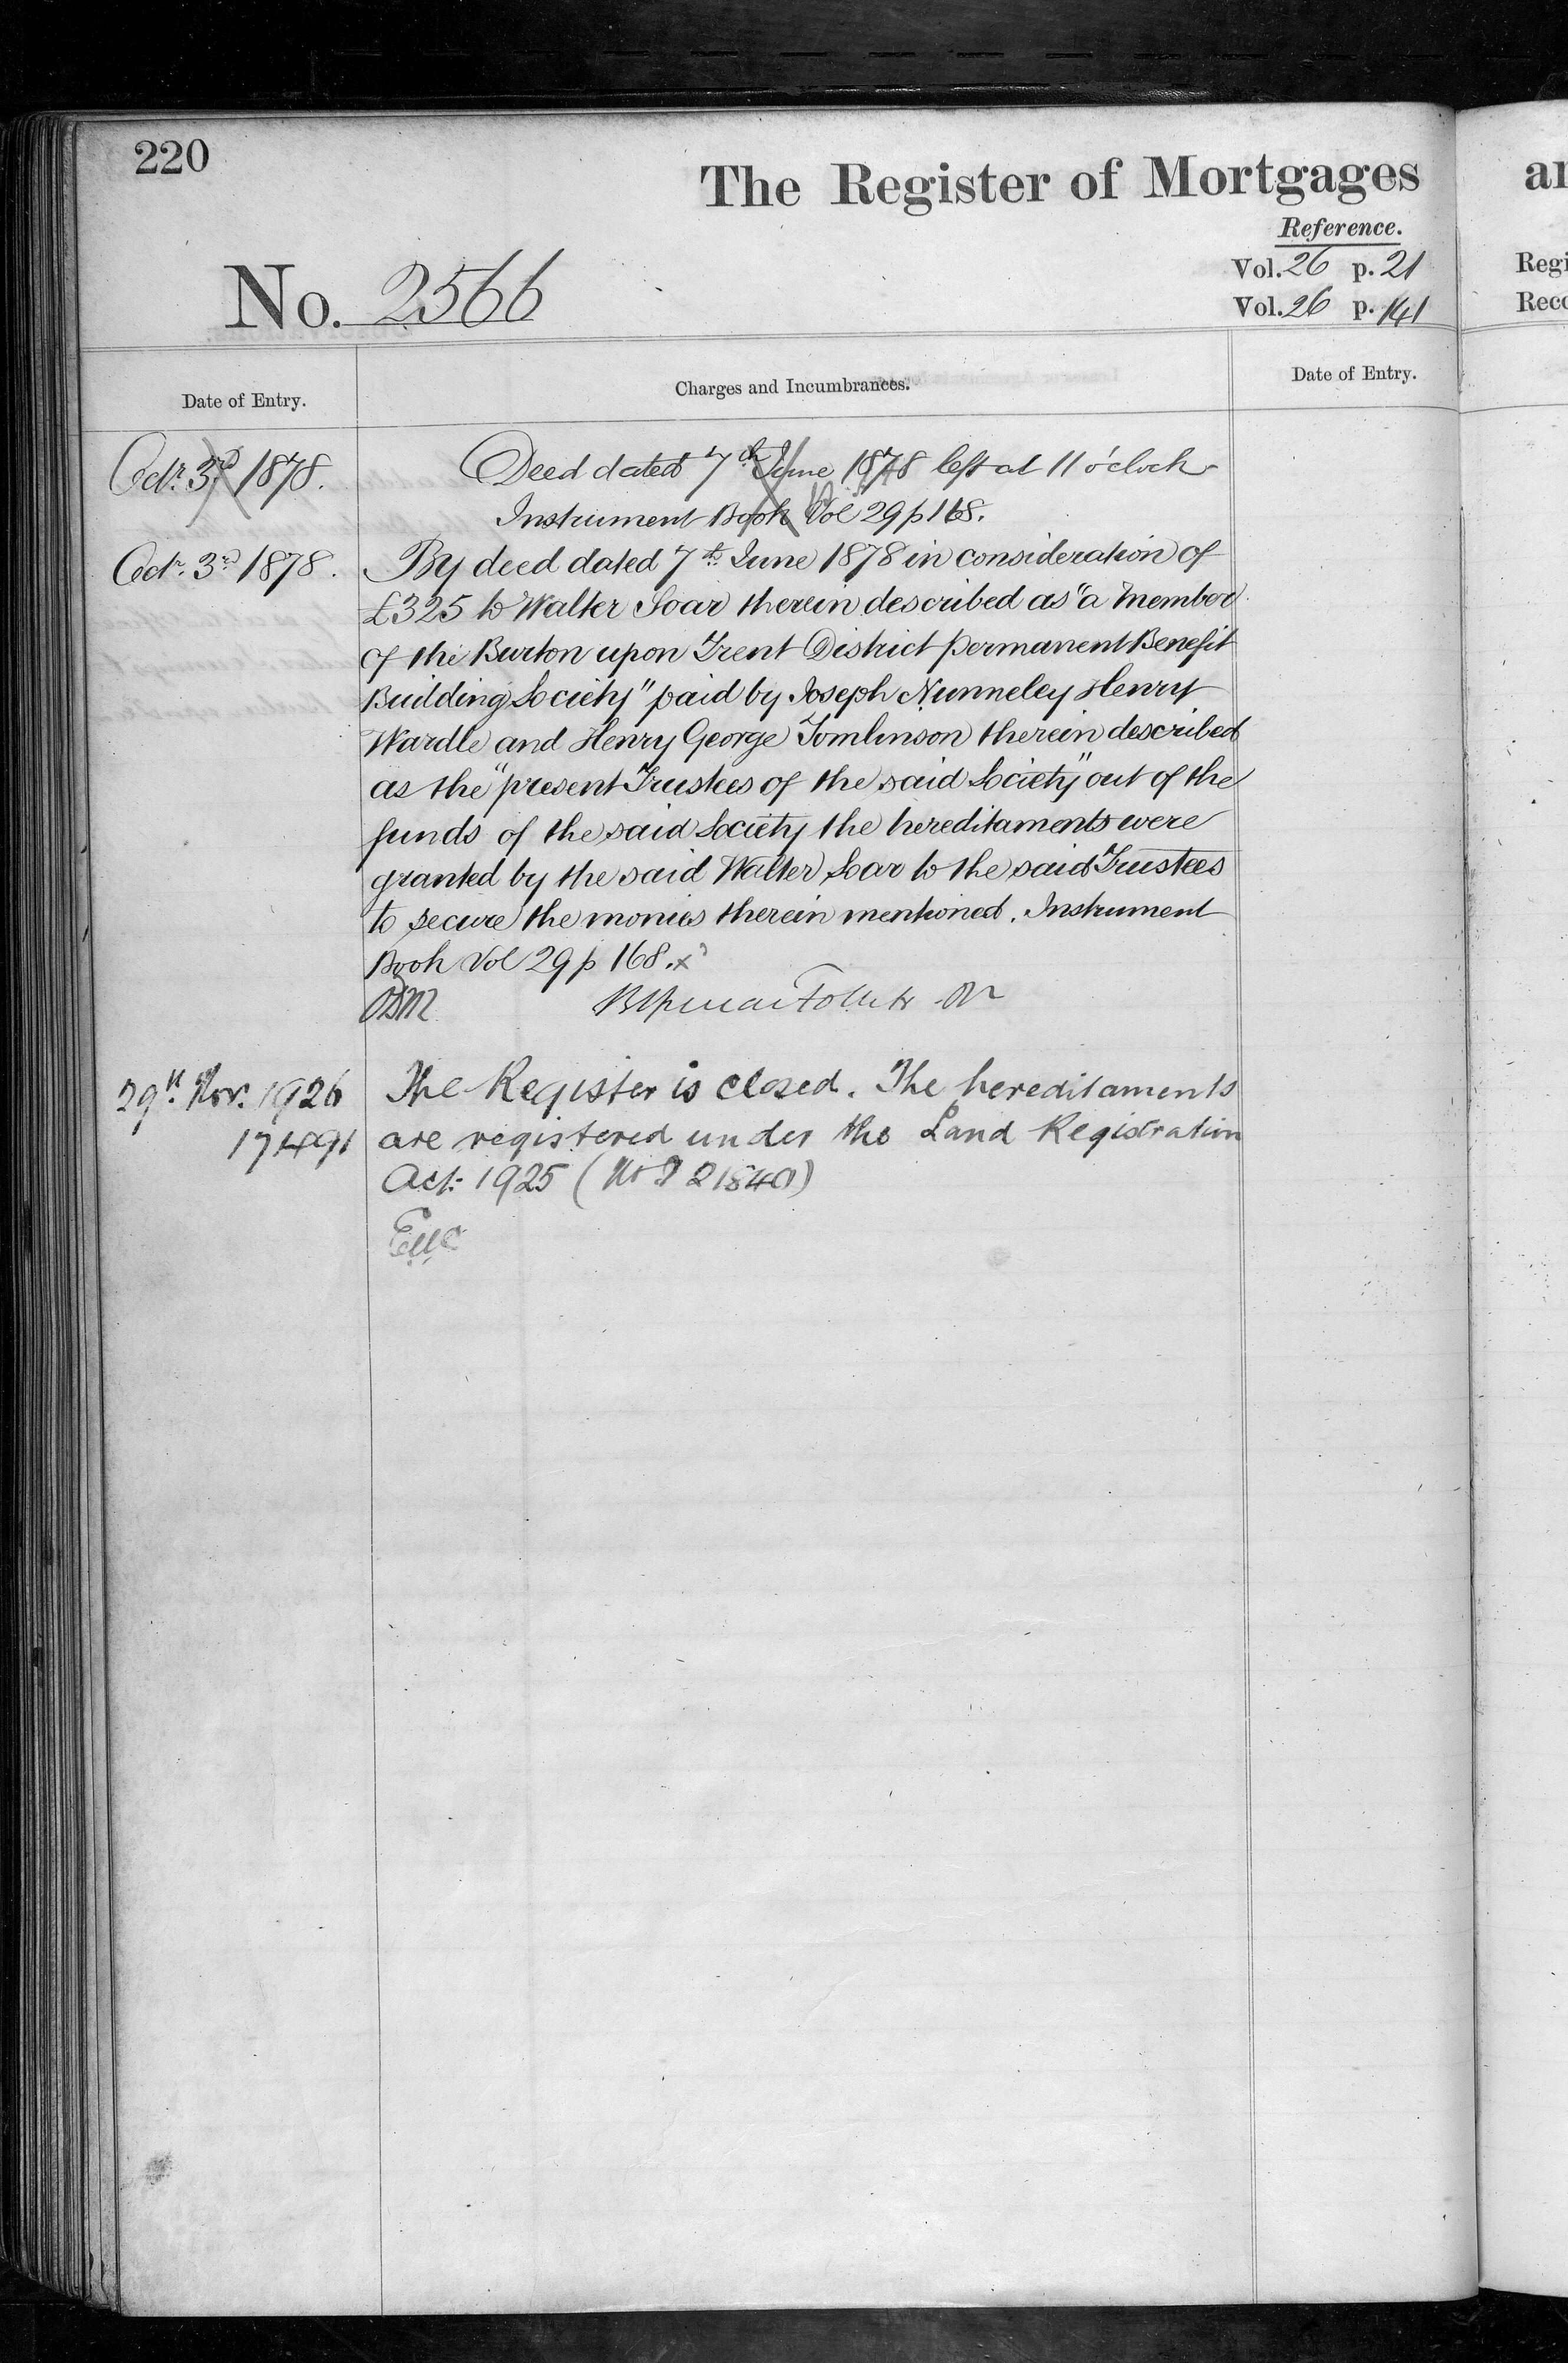 220
The Register of Mortgages
Reference.
Vol. 26 p. 21
Vol. 26 p. 141
No. 2566
Date of Entry.
Charges and Incumbrances.
Date of Entry.
Octr. 3rd 1878. Deed dated 7th June 1878 left at 11 o'clock
Instrument Book Vol 29 p 168.
Octr. 3rd 1878. By deed dated 7th June 1878 in consideration of
£325 to Walter Soar therein described as "a Member
of the Burton upon Trent District Permanent Benefit
Building Society" paid by Joseph Nunneley Henry
Wardle and Henry George Tomlinson therein described
as the "present Trustees of the said Society" out of the
funds of the said Society the hereditaments were
granted by the said Walter Soar to the said Trustees
to secure the monies therein mentioned. Instrument
Book Vol 29 p 168. x
29th Nov. 1926 The Register is closed. The hereditaments
17491 are registered under the Land Registration
Act: 1925 (No P 21840)
ar
Regi
Reco